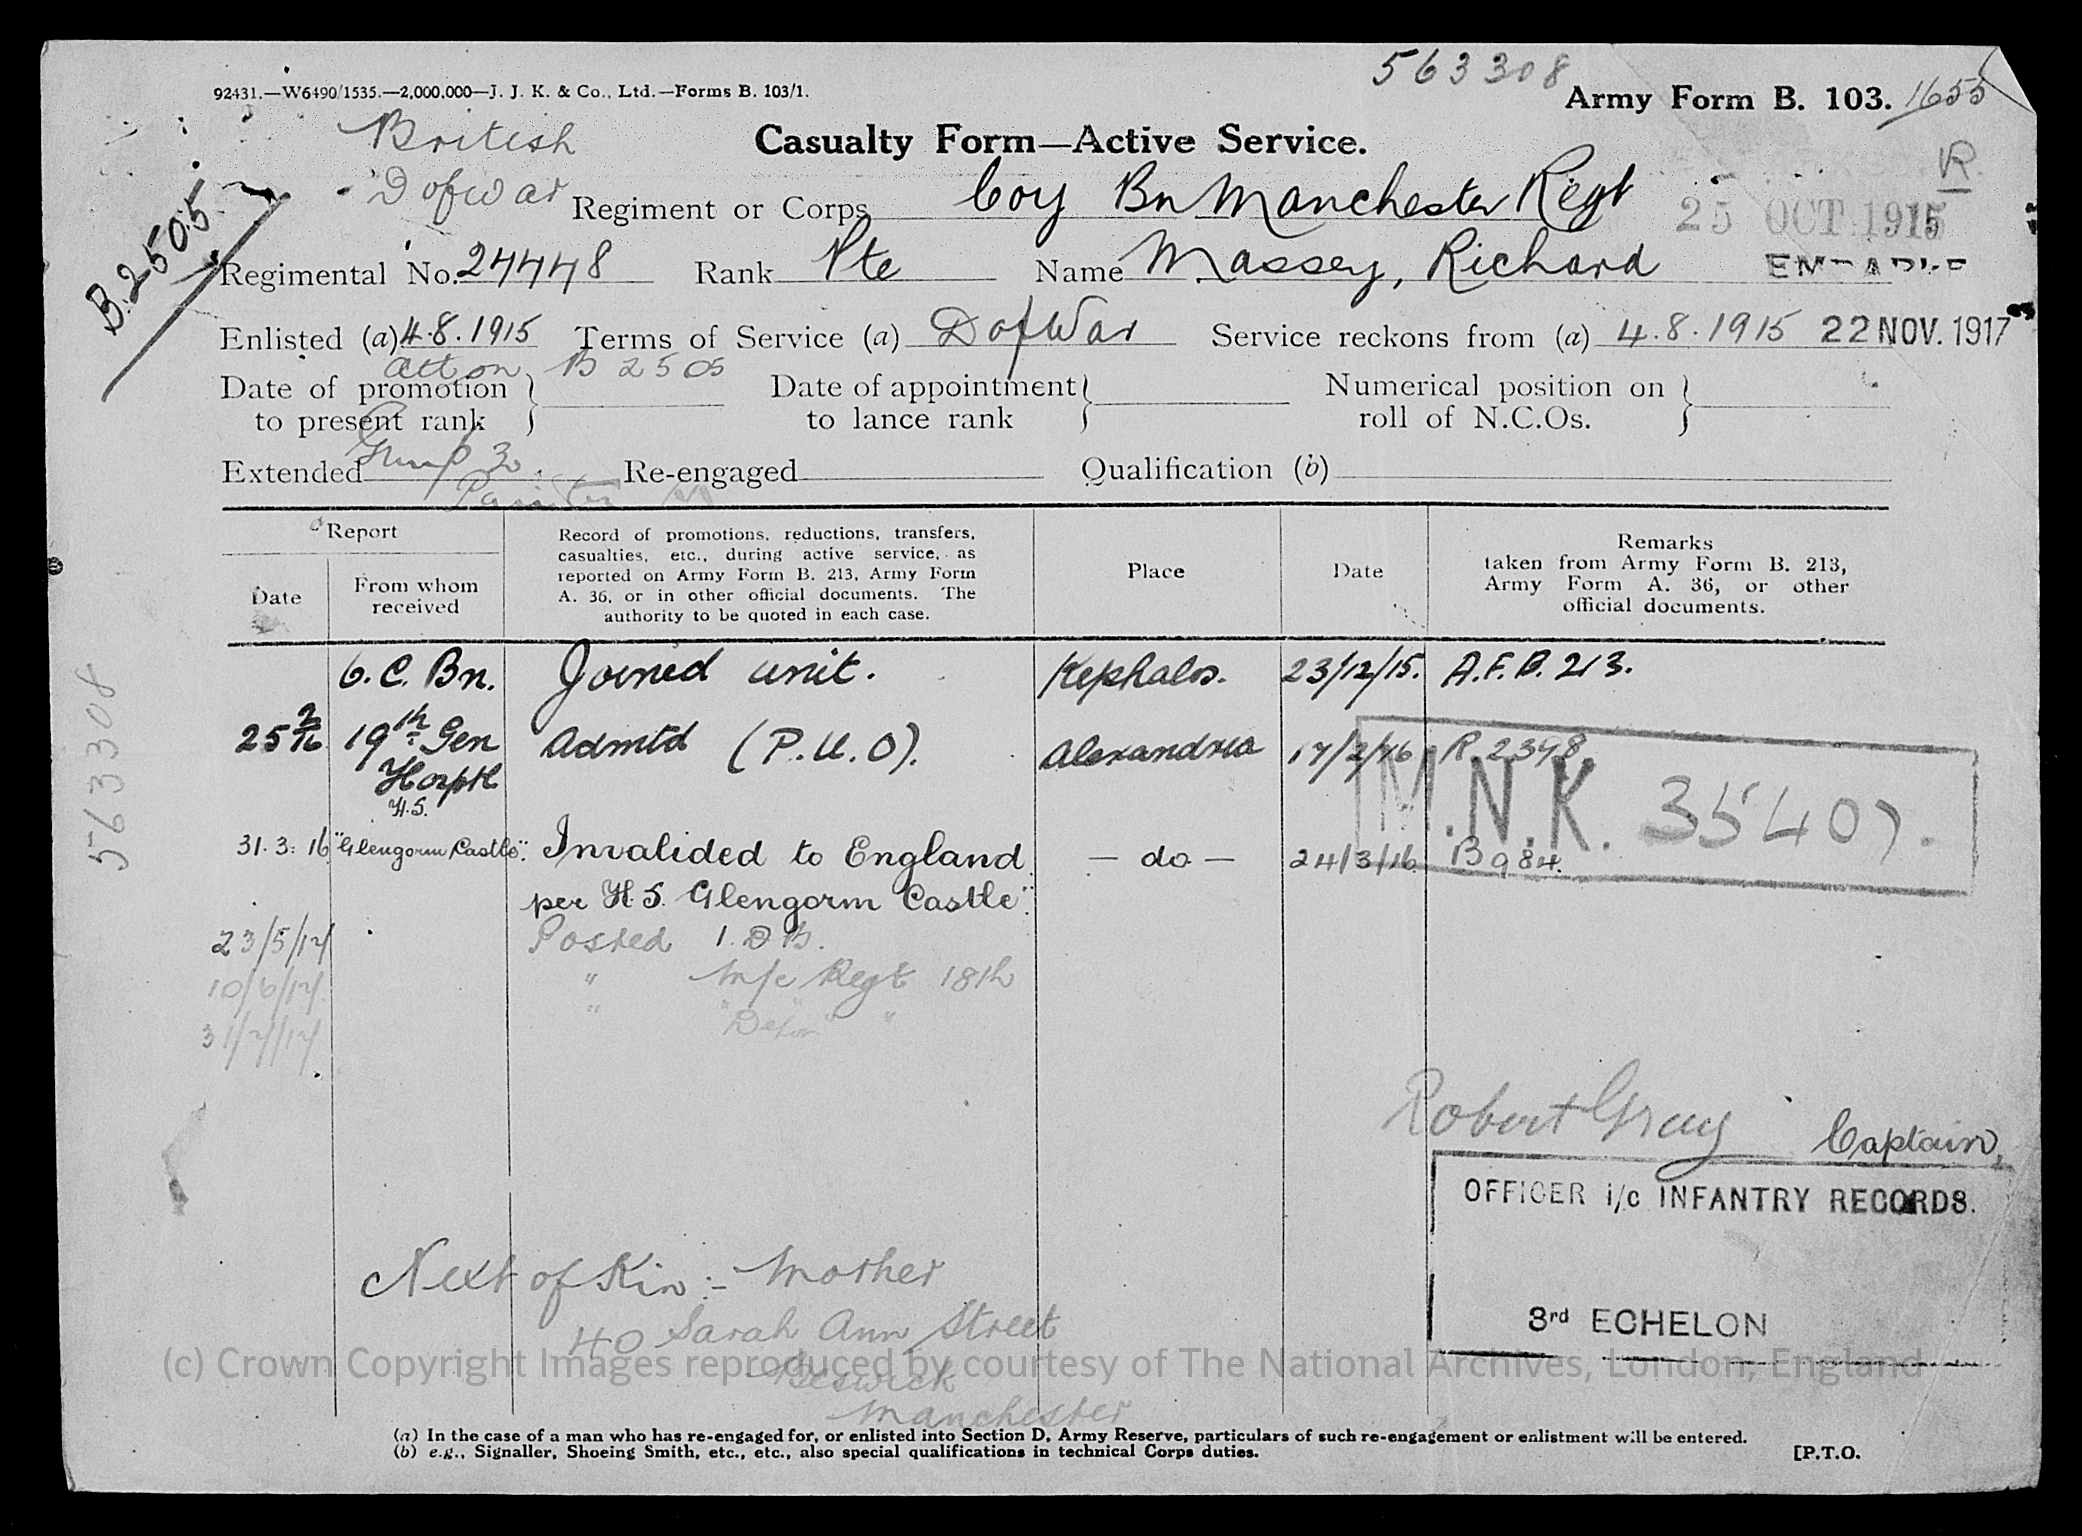 563308
92431.—W6490/1535.—2,000,000—J. J. K. & Co., Ltd.—Forms B. 103/1.
Army Form B. 103. 1655
British
Casualty Form—Active Service.
R.
D of War
Regiment or Corps Coy Bn Manchester Regt
25 OCT 1915
B.2505
Regimental No. 24448 Rank Pte Name Massey, Richard
Enlisted (a) 4.8.1915 Terms of Service (a) D of War Service reckons from (a) 4.8.1915 22 NOV. 1917
Att on B 2505
Date of promotion to present rank } Date of appointment to lance rank } Numerical position on roll of N.C.Os. }
Extended Re-engaged Qualification (b)
Painter
Report
Date
From whom received
Record of promotions, reductions, transfers,
casualties, etc., during active service, as
reported on Army Form B. 213, Army Form
A. 36, or in other official documents. The
authority to be quoted in each case.
Place
Date
Remarks
taken from Army Form B. 213,
Army Form A. 36, or other
official documents.
O.C. Bn. Joined unit. Kephalos. 23/12/15. A.F.B. 213.
25 2/16 19th Gen Admtd (P.U.O). Alexandria 17/2/16 R.2398.
Hosptl
H.S.
M.N.K. 35407.
31.3.16 "Glengorm Castle". Invalided to England — do — 24/3/16 B984.
per H.S. Glengorm Castle".
23/5/17 Posted 1.D.B.
10/6/17 " M/c Regt 18th
31/7/17 " "Depot" "
563308
Robert Gray Captain,
OFFICER i/c INFANTRY RECORDS.
3rd ECHELON
Next of Kin :- Mother
40 Sarah Ann Street
Beswick
Manchester
(c) Crown Copyright Images reproduced by courtesy of The National Archives, London, England
(a) In the case of a man who has re-engaged for, or enlisted into Section D, Army Reserve, particulars of such re-engagement or enlistment will be entered.
(b) e.g., Signaller, Shoeing Smith, etc., etc., also special qualifications in technical Corps duties.
[P.T.O.